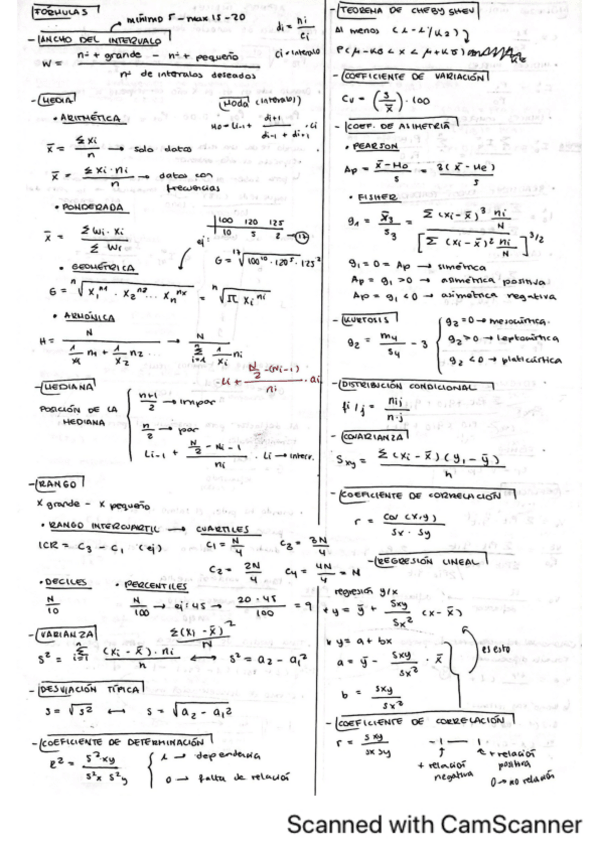 FORMULAS
mínimo 5 - max 15 - 20
di = ni / ci
ci = intervalo
- ANCHO DEL INTERVALO
W = nº + grande - nº + pequeño / nº de intervalos deseados
- MEDIA
Moda (intervalos)
Mo = Li-1 + di+1 / di-1 + di+1 . Ci
• ARITMÉTICA
x̄ = Σ xi / n → solo datos
x̄ = Σ xi · ni / n → datos con frecuencias
• PONDERADA
x̄ = Σ Wi · Xi / Σ Wi
100 120 125
ej: 10 5 2 → 17
• GEOMÉTRICA
G = ¹⁷√100¹⁰ · 120⁵ · 125²
G = ⁿ√X₁ⁿ¹ · X₂ⁿ² ... Xₙⁿˣ = ⁿ√π Xiⁿⁱ
• ARMÓNICA
H = N / 1/x₁ n₁ + 1/x₂ n₂ ... → N / Σ 1/xi ni
- MEDIANA
POSICIÓN DE LA MEDIANA
n+1 / 2 → impar
n / 2 → par
Li-1 + N/2 - Ni-1 / ni . Li → interv.
N/2 - (Ni-1) / ni · ai
- RANGO
x grande - x pequeño
• RANGO INTERCUARTIL → CUARTILES
ICR = C3 - C1 (ej)
C1 = N/4
C3 = 3N/4
C2 = 2N/4
C4 = 4N/4 = N
• DECILES
N/10
• PERCENTILES
N/100 → ej: 45 → 20 · 45 / 100 = 9
- VARIANZA
Σ (xi - x̄)² / N
s² = Σ (xi - x̄) · ni / n ↔ s² = a2 - a1²
- DESVIACIÓN TÍPICA
s = √s² ↔ s = √a2 - a1²
- COEFICIENTE DE DETERMINACIÓN
R² = s²xy / s²x s²y
1 → dependencia
0 → falta de relación
- TEOREMA DE CHEBYSHEV
Al menos (1 - 1/k2)
P(μ - Kσ < x < μ + Kσ)
- COEFICIENTE DE VARIACIÓN
Cv = (s / x̄) · 100
- COEF. DE ASIMETRÍA
• PEARSON
Ap = x̄ - Mo / s = 3(x̄ - Me) / s
• FISHER
g1 = / s3 = Σ (xi - x̄)³ ni/N / [Σ (xi - x̄)² ni/N]^3/2
g1 = 0 = Ap → simétrica
Ap = g1 > 0 → asimétrica positiva
Ap = g1 < 0 → asimétrica negativa
- KURTOSIS
g2 = m4 / s4 - 3
g2 = 0 → mesocúrtica.
g2 > 0 → leptocúrtica
g2 < 0 → platicúrtica
- DISTRIBUCIÓN CONDICIONAL
fi/j = nij / n·j
- COVARIANZA
Sxy = Σ (xi - x̄)(yi - ȳ) / n
- COEFICIENTE DE CORRELACIÓN
r = Cov (x,y) / Sx · Sy
- REGRESIÓN LINEAL
regresión y/x
y = ȳ + Sxy / Sx² (x - x̄)
y = a + bx
es esto
a = ȳ - Sxy / Sx² · x̄
b = Sxy / Sx²
- COEFICIENTE DE CORRELACIÓN
r = Sxy / Sx Sy
-1 — 1
+ relación negativa
+ relación positiva
0 → no relación
Scanned with CamScanner